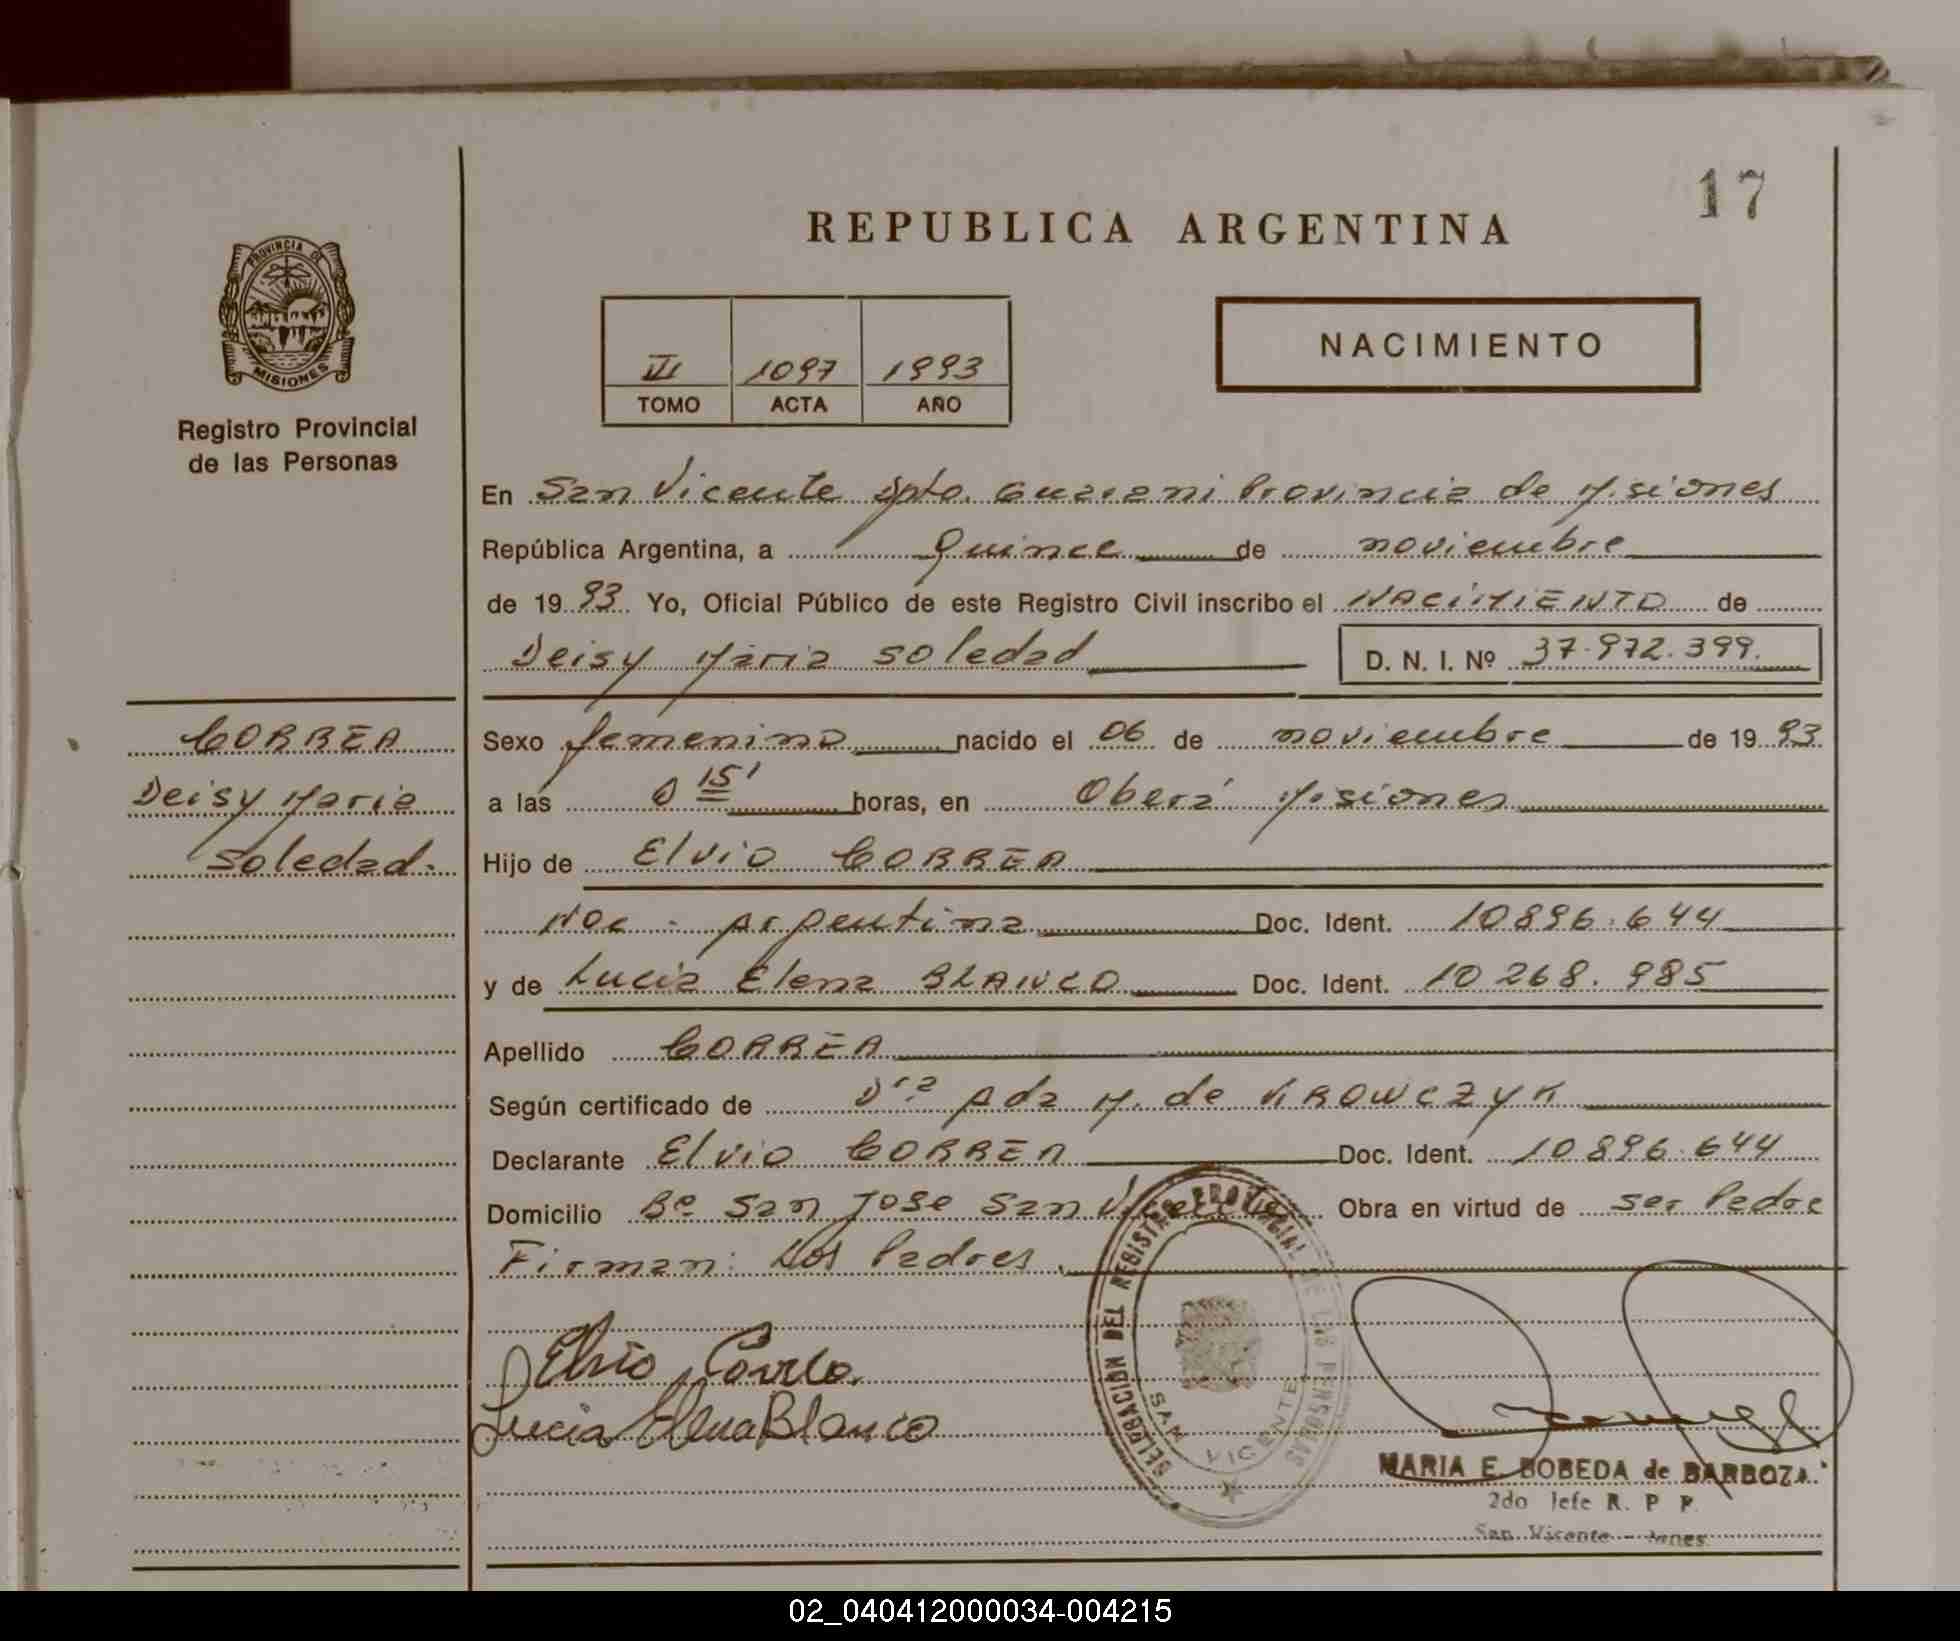 17
REPUBLICA ARGENTINA
PROVINCIA DE
MISIONES
Registro Provincial
de las Personas
III 1097 1993
TOMO ACTA AÑO
NACIMIENTO
En San Vicente Dpto. Guarani Provincia de Misiones
República Argentina, a Quince de noviembre
de 1993 Yo, Oficial Público de este Registro Civil inscribo el NACIMIENTO de
Deisy Maria Soledad D. N. I. Nº 37.972.399.
CORREA
Deisy Maria
Soledad.
Sexo femenino nacido el 06 de noviembre de 1993
a las 0 15' horas, en Oberá Misiones
Hijo de Elvio CORREA
Nac. Argentina Doc. Ident. 10896.644
y de Lucia Elena BLANCO Doc. Ident. 10268.985
Apellido CORREA
Según certificado de Dra Ada M. de KROWCZYK
Declarante Elvio CORREA Doc. Ident. 10896.644
Domicilio Bº San Jose San Vicente Obra en virtud de ser Padre
Firman: Los Padres.
Elvio Correa
Lucia Elena Blanco
DELEGACION DEL REGISTRO PROVINCIAL DE LAS PERSONAS
SAN VICENTE
MARIA E. BOBEDA de BARBOZA
2do Jefe R. P. P.
San Vicente - Mnes.
02_040412000034-004215